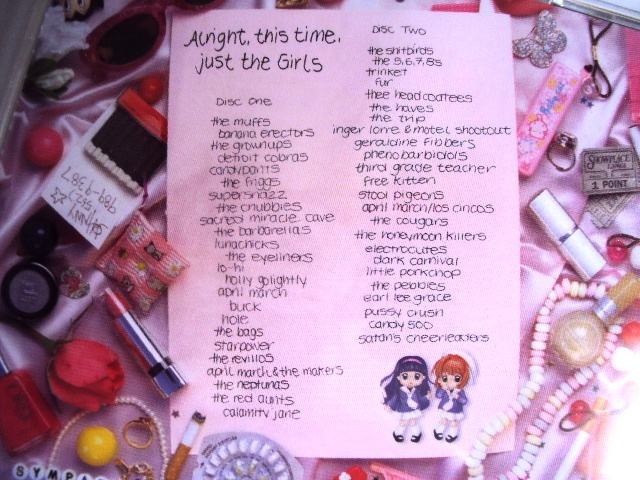 Alright, this time,
just the Girls
Disc One
the muffs
banana erectors
the grownups
detroit cobras
candypants
the friggs
supersnazz
the chubbies
sacred miracle cave
the barbarellas
lunachicks
the eyeliners
lo-hi
holly golightly
april march
buck
hole
the bags
starpower
the revillos
april march & the makers
the neptunas
the red aunts
calamity jane
Disc Two
the shitbirds
the 5,6,7,8s
trinket
fur
thee headcoatees
the haves
the trip
inger lorre & motel shootout
geraldine fibbers
phenobarbidols
third grade teacher
free kitten
stool pigeons
april march/los cincos
the cougars
the honeymoon killers
electrocutes
dark carnival
little porkchop
the pebbles
earl lee grace
pussy crush
candy 500
satan's cheerleaders
1 POINT
SYMPA